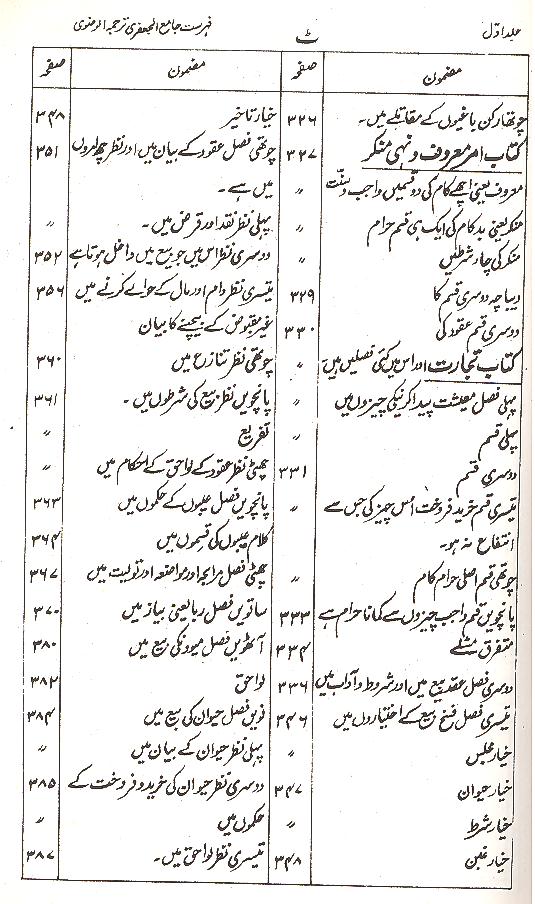 جلد اوّل
ٹ
فہرست جامع الجعفری ترجمہ الرضوی
مضمون صفحہ
چوتھا رکن باغیوں کے مقاتلے میں۔ ۳۲۶
کتاب امر معروف و نہی منکر ۳۲۷
معروف یعنی اچھے کام کی دو قسمیں واجب و سنّت 〃
منکر یعنی بد کام کی ایک ہی قسم حرام 〃
منکر کی چار شرطیں 〃
دیباچہ دوسری قسم کا ۳۲۹
دوسری قسم عقود کی ۳۳۰
کتاب تجارت اور اس میں کئی فصلیں ہیں 〃
پہلی فصل معیشت پیدا کرنیکی چیزوں میں 〃
پہلی قسم 〃
دوسری قسم ۳۳۱
تیسری قسم خرید فروخت اس چیز کی جس سے 〃
انتفاع نہ ہو۔
چوتھی قسم اصلی حرام کام 〃
پانچویں قسم واجب چیزوں سے کمانا حرام ہے ۳۳۳
متفرق مسئلے ۳۳۴
دوسری فصل عقد بیع میں اور شروط و آداب میں ۳۳۶
تیسری فصل فسخ بیع کے اختیاروں میں ۳۴۶
خیار مجلس 〃
خیار حیوان ۳۴۷
خیار شرط 〃
خیار غبن ۳۴۸
مضمون صفحہ
خیار تاخیر ۳۴۸
چوتھی فصل عقود کے بیان میں اور نظر چھ امروں ۳۵۱
میں ہے۔
پہلی نظر نقد اور قرض میں۔ 〃
دوسری نظر اس میں جو بیع میں داخل ہوتا ہے ۳۵۲
تیسری نظر دام اور مال کے حوالے کرنے میں ۳۵۶
غیر مقبوض کے بیچنے کا بیان
چوتھی نظر تنازع میں ۳۶۰
پانچویں نظر بیع کی شرطوں میں۔ ۳۶۱
تفریع 〃
چھٹی نظر عقود کے لواحق کے احکام میں 〃
پانچویں فصل عیبوں کے حکموں میں ۳۶۳
کلام عیبوں کی قسموں میں ۳۶۴
چھٹی فصل مرابحہ اور مواضعہ اور تولیت میں ۳۶۷
ساتویں فصل ربا یعنی بیاز میں ۳۷۰
آٹھویں فصل میوونکی بیع میں ۳۸۰
لواحق ۳۸۲
نویں فصل حیوان کی بیع میں ۳۸۴
پہلی نظر حیوان کے بیان میں 〃
دوسری نظر حیوان کی خرید و فروخت کے ۳۸۵
حکموں میں 〃
تیسری نظر لواحق میں۔ ۳۸۷